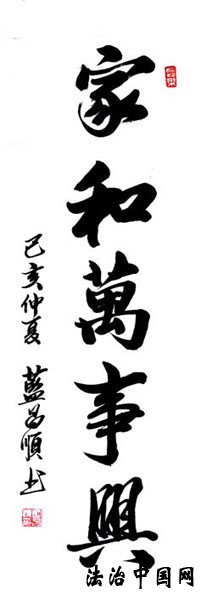 家和萬事興
己亥仲夏 藍昌順书
法治中国网